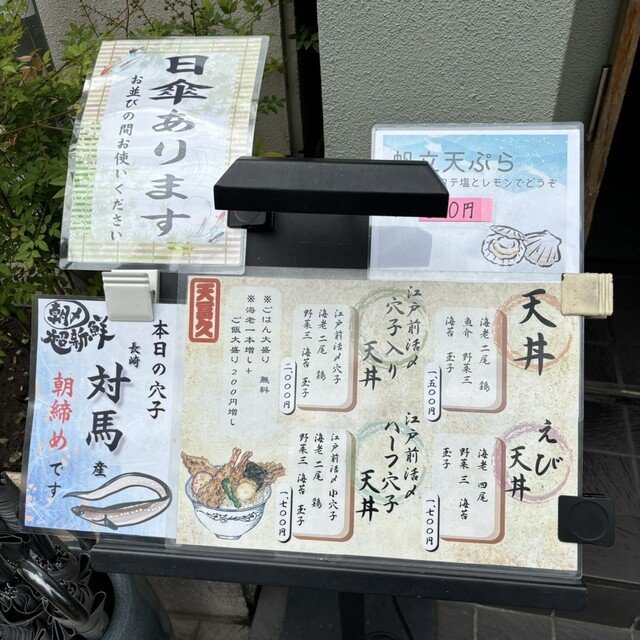 日傘あります
お並びの間お使いください
帆立天ぷら
塩とレモンでどうぞ
0円
本日の穴子
長崎
対馬
産
朝締めです
天丼
海老 二尾 鶏
魚介 野菜三
海苔 玉子
一五〇〇円
江戸前活〆
穴子入り
天丼
江戸前活〆穴子
海老 二尾 鶏
野菜三 海苔 玉子
二〇〇〇円
※ごはん大盛り 無料
※海老一本増し+
ご飯大盛り 200円増し
えび
天丼
海老 四尾
野菜三 海苔
玉子
一七〇〇円
江戸前活〆
ハーフ穴子
天丼
江戸前活〆小穴子
海老 二尾 鶏
野菜三 海苔 玉子
一七〇〇円